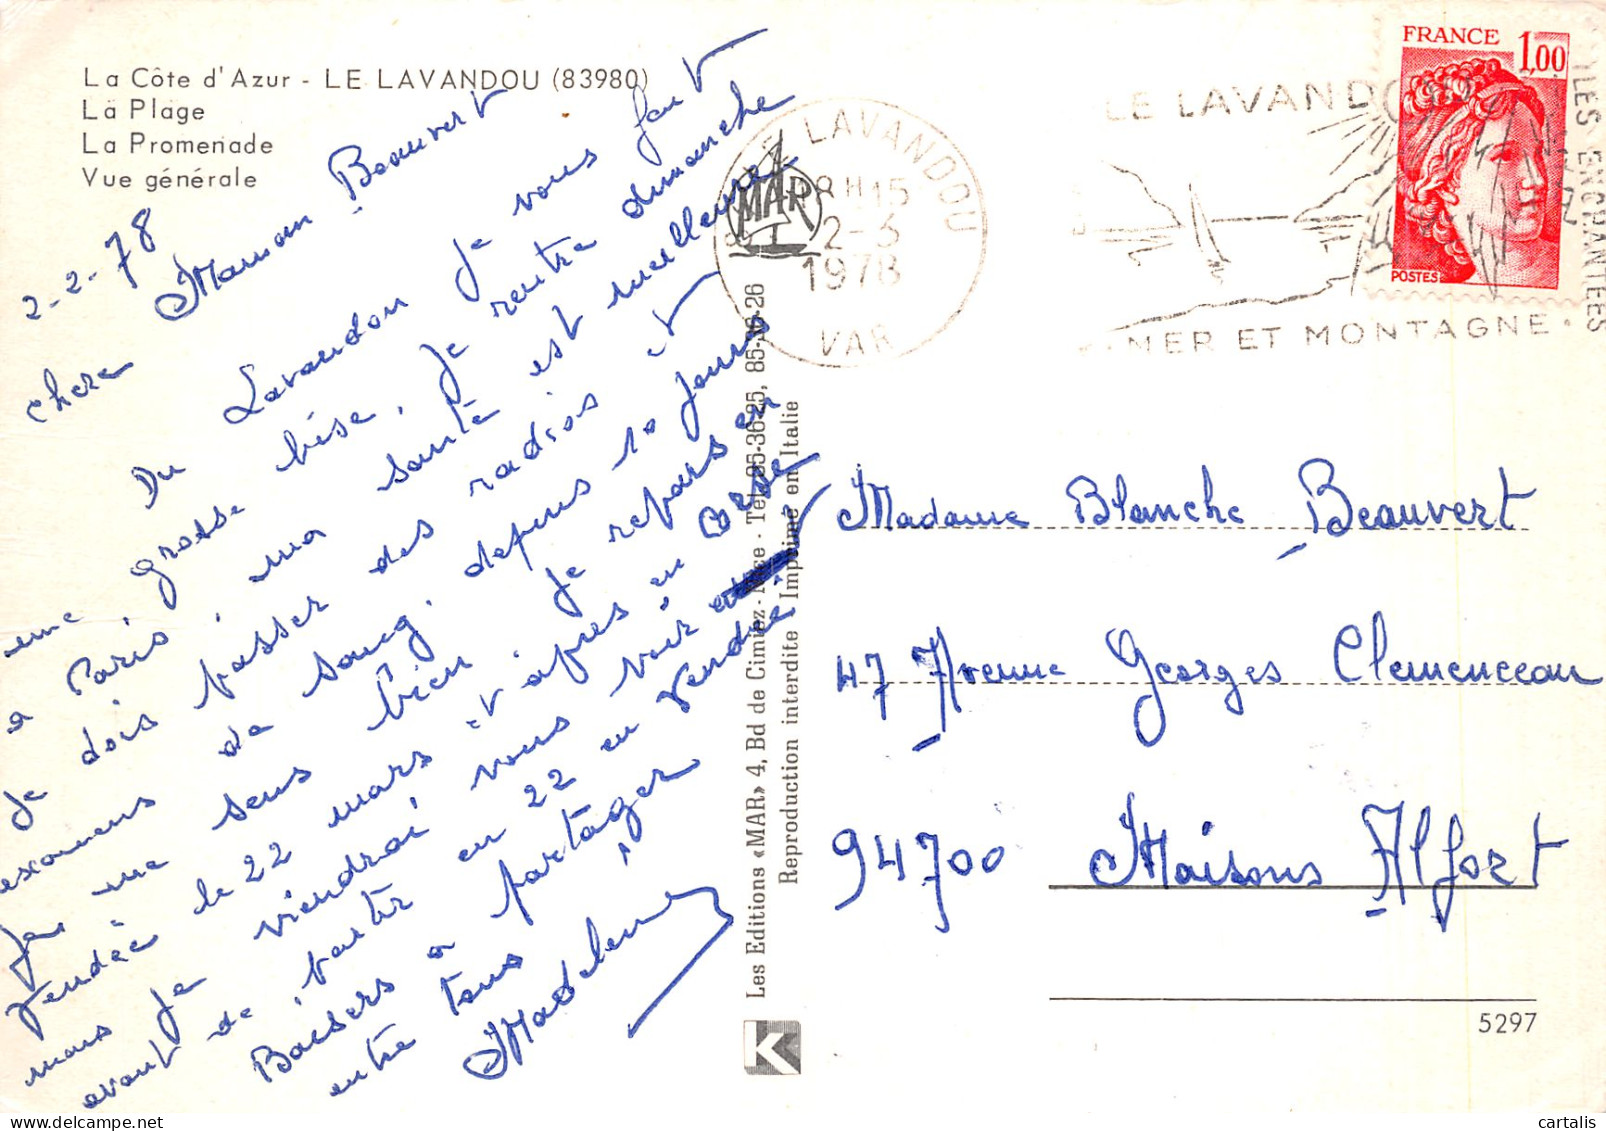 La Côte d'Azur - LE LAVANDOU (83980)
La Plage
La Promenade
Vue générale
2-2-78
chere Maman Beauvert
Du Lavandou je vous fait
une grosse bise, je rentre dimanche
a Paris, ma santé est meilleure
je dois passer des radios et
examens de sang. depuis 10 jours
je me sens bien. Je repars en
Vendée le 22 mars et apres en Corse
mais je viendrai vous voir
avant de partir en 22 en Vendée
Baisers a partager
entre tous
Madeleine
MAR
LE LAVANDOU
18H15
2-3
1978
VAR
LE LAVANDOU
SES ILES ENCHANTEES
MER ET MONTAGNE.
FRANCE 1,00
POSTES
Les Editions «MAR» 4, Bd de Cimiez - Nice - Tél. 85-36-25, 85-36-26
Reproduction interdite Imprimé en Italie
K
Madame Blanche Beauvert
47 Avenue Georges Clemenceau
94700 Maisons Alfort
5297
cartalis